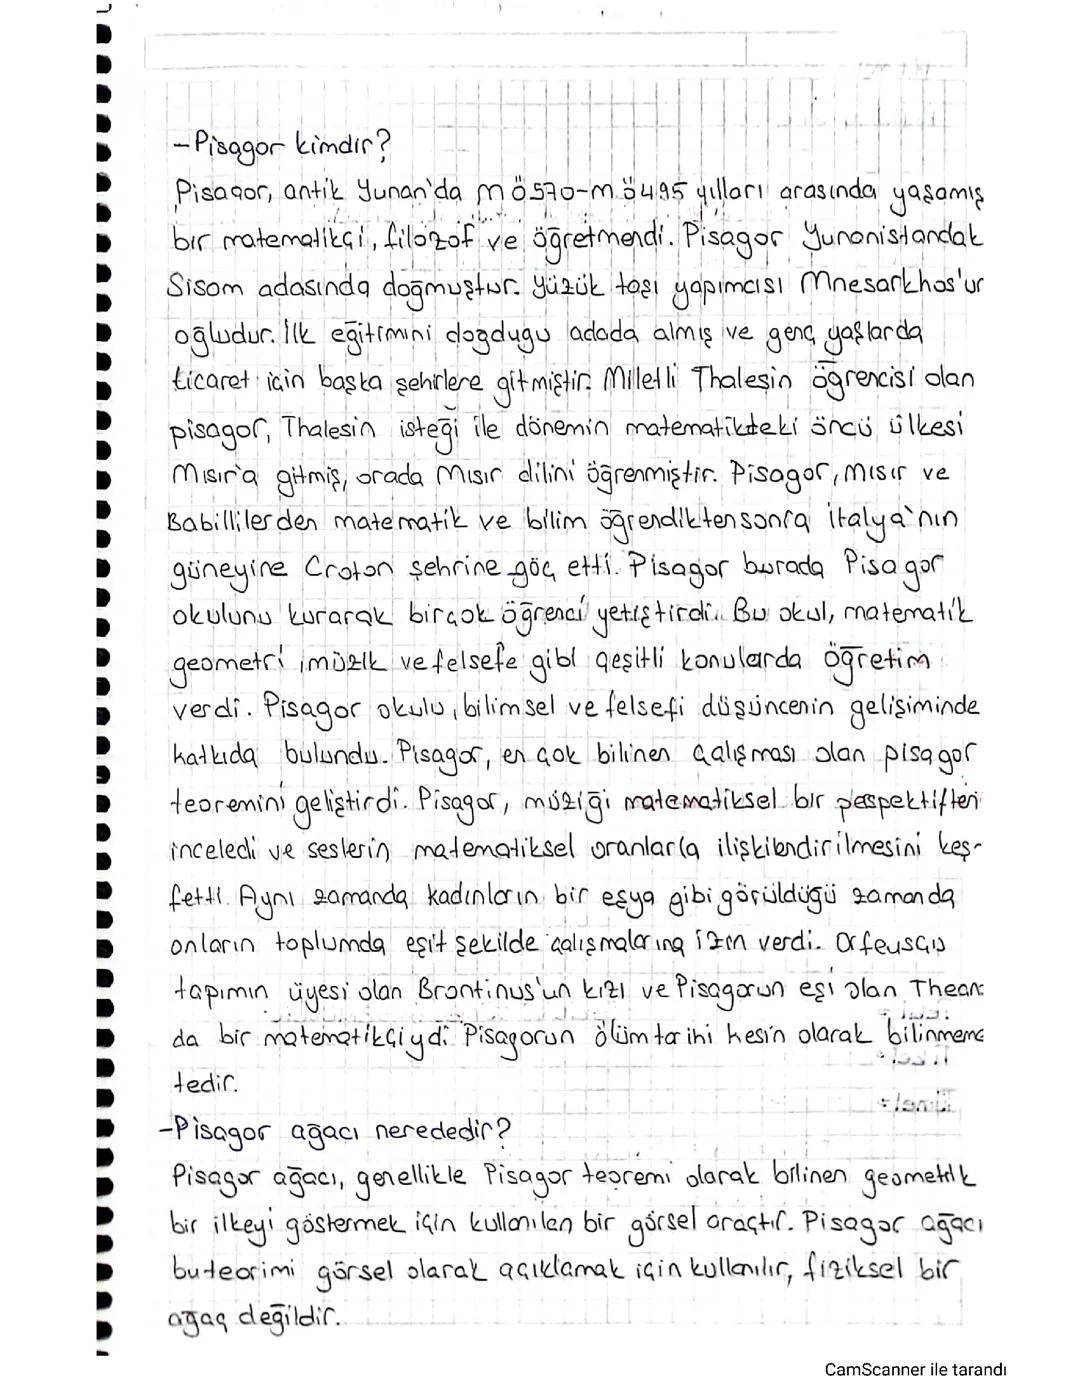 -Pisagor kimdir?
Pisagor, antik Yunan'da MÖ570-M.Ö495 yılları arasında yaşamış
bir matematikçi, filozof ve öğretmendi. Pisagor Yunanistandak
Sisam adasında doğmuştur. Yüzük taşı yapımcısı Mnesarkhos'un
oğludur. İlk eğitimini doğdugu adada almış ve genç yaşlarda
ticaret için başka şehirlere gitmiştir. Miletli Thalesin öğrencisi olan
pisagor, Thalesin isteği ile dönemin matematikteki öncü ülkesi
Mısır'a gitmiş, orada Mısır dilini öğrenmiştir. Pisagor, Mısır ve
Babillilerden matematik ve bilim öğrendikten sonra İtalya'nın
güneyine Croton şehrine göç etti. Pisagor burada Pisagor
okulunu kurarak birçok öğrenci yetiştirdi. Bu okul, matematik
geometri, müzik ve felsefe gibi çeşitli konularda öğretim
verdi. Pisagor okulu, bilimsel ve felsefi düşüncenin gelişiminde
katkıda bulundu. Pisagor, en çok bilinen çalışması olan pisagor
teoremini geliştirdi. Pisagor, müziği matematiksel bir perspektiften
inceledi ve seslerin matematiksel oranlarla ilişkilendirilmesini keş-
fetti. Aynı zamanda kadınların bir eşya gibi görüldüğü zamanda
onların toplumda eşit şekilde çalışmalarına izin verdi. Orfeusçu
tapımın üyesi olan Brontinus'un kızı ve Pisagorun eşi olan Thean
da bir matematikçiydi. Pisagorun ölüm tarihi kesin olarak bilinmeme
tedir.
-Pisagor ağacı nerededir?
Pisagor ağacı, genellikle Pisagor teoremi olarak bilinen geometrik
bir ilkeyi göstermek için kullanılan bir görsel araçtır. Pisagor ağacı
bu teorimi görsel olarak açıklamak için kullanılır, fiziksel bir
ağaç değildir.
CamScanner ile tarandı